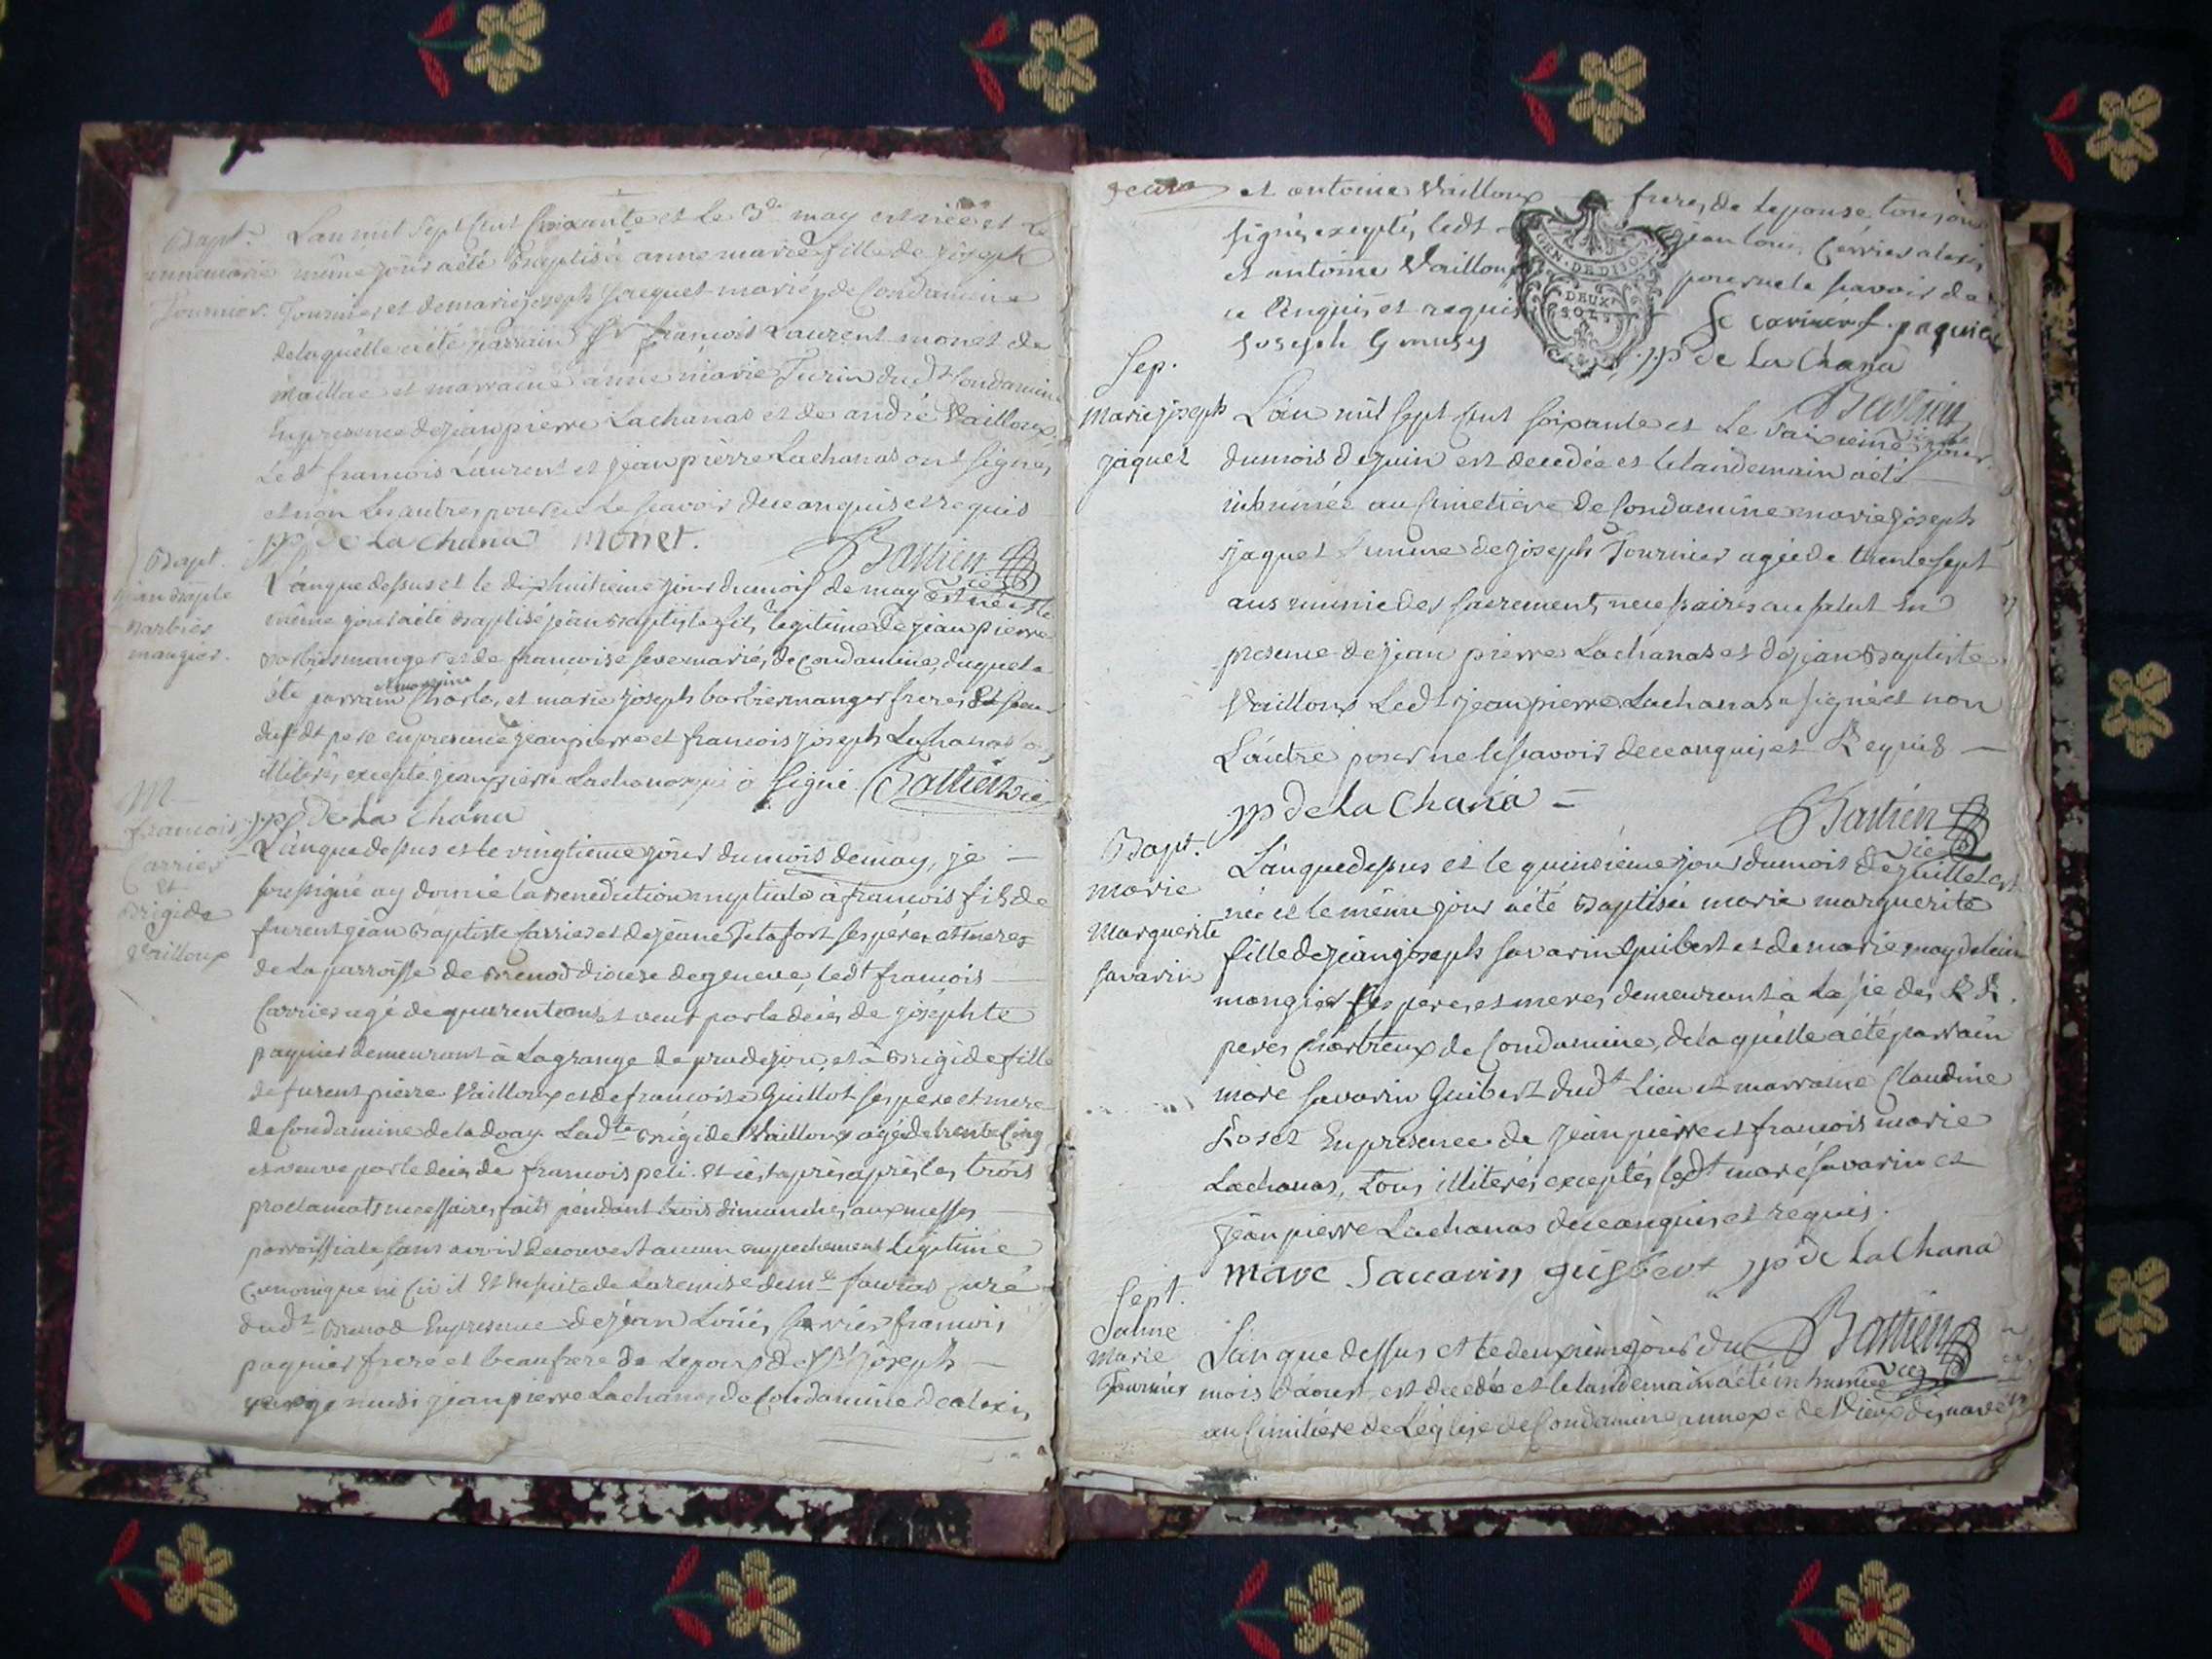 Bapt.
annemarie
Fournier.
L'an mil Sept Cent Soixante et le 3e may est née et le
même jour a été Baptisée anne marie fille de joseph
Fournier et de marie joseph jacquet mariés de Condamine
de laquelle a été parrain Sr françois Laurent monet de
maillac et marraine anne marie Turin dudt Condamine
En presence de jean pierre Lachanas et de andré Vailloux
Ledt francois Laurent et jean pierre Lachanas ont signes
et non les autres pour ne le scavoir de ce enquis et requis
jjp De La chana monet.
Bastien vic
Bapt.
jean baptte
barbier
manger.
L'an que dessus et le dix huitieme jour du mois de may est né et le
même jour a été baptisé jean baptiste fils legitime de jean pierre
barbiermanger et de francoise seve mariés de condamine, duquel a
été parrain et marraine Charles et marie joseph barbiermanger freres et soeur
dudt pere en presence jean pierre et francois joseph Lachanas
illiterés excepté jean pierre Lachanas qui a signé. Bastien vic
jjp De La Chana
M
francois
Carrier
et
Brigide
Vailloux
L'an que dessus et le vingtieme jour du mois de may, je
soussigné ay donné la benediction nuptiale à francois fils de
furent jean Baptiste Carrier et de jeane ses pere et mere
de la parroisse de Brenod diocese de geneve, ledt francois
Carrier agé de quarente ans et veuf par le deces de josephte
paquier demeurant à La grange de pradejon, et à Brigide fille
de furent pierre Vailloux et de francoise Guillot ses pere et mere
de Condamine de la doay. Ladte Brigide Vailloux agée de trente Cinq
et veuve par le deces de francois peli. et ce apres les trois
proclamats necessaires faits pendant trois dimanches aux messes
parroissiale sans avoir decouvert aucun empechement legitime
Canonique ni Civil et en suite de la remise de mre curé
dudt Brenod En presence de jean Louis Carrier francois
paquier frere et beaufrere de Lepoux de joseph
jean pierre Lachanas de Condamine de alexis
jean et antoine Vailloux freres de Lepouse tous ont
signés exeptés ledt jean louis Carrier alexis
et antoine Vailloux pour ne le scavoir de
ce Enquis et requis Sc carrier f. paquier
joseph jjp de La Chana
Bastien vic
Sep.
marie joseph
jaquet
L'an mil sept Cent soixante et le jour
du mois de juin est decedée et le landemain a été
inhumée au Cimetiere de Condamine marie joseph
jaquet femme de joseph Fournier agée de trente sept
ans munie des sacrements necessaires au salut En
presence de jean pierre Lachanas et de jean Baptiste
Vailloux Ledt jean pierre Lachanas a signé et non
L'autre pour ne le scavoir de ce enquis et Requis
jjp de La Chana
Bastien vic
Bapt.
marie
Marguerite
savarin
L'an que dessus et le quinsieme jour du mois de juillet est
née et le même jour a été Baptisée marie marguerite
fille de jean joseph savarin Guibert et de marie magdelein
mangier ses pere et mere demeurant à La sie des RR.
peres Chartreux de Condamine, de laquelle a été parrain
marc savarin Guibert dudt Lieu et marraine Claudine
Roset En presence de jean pierre et francois marie
Lachanas, tous illiterés exceptés ledt marc savarin et
jean pierre Lachanas de ce enquis et requis.
marc Savarin guibert jjp de La Chana
Bastien vic
Sept.
marie
Fournier
L'an que dessus et le deuxieme jour du
mois daoust est decedée et le landemain a été inhumée
au Cimitiere de L'eglise de Condamine annexe de Vieux
GEN. DE DIJON
DEUX
SOLS